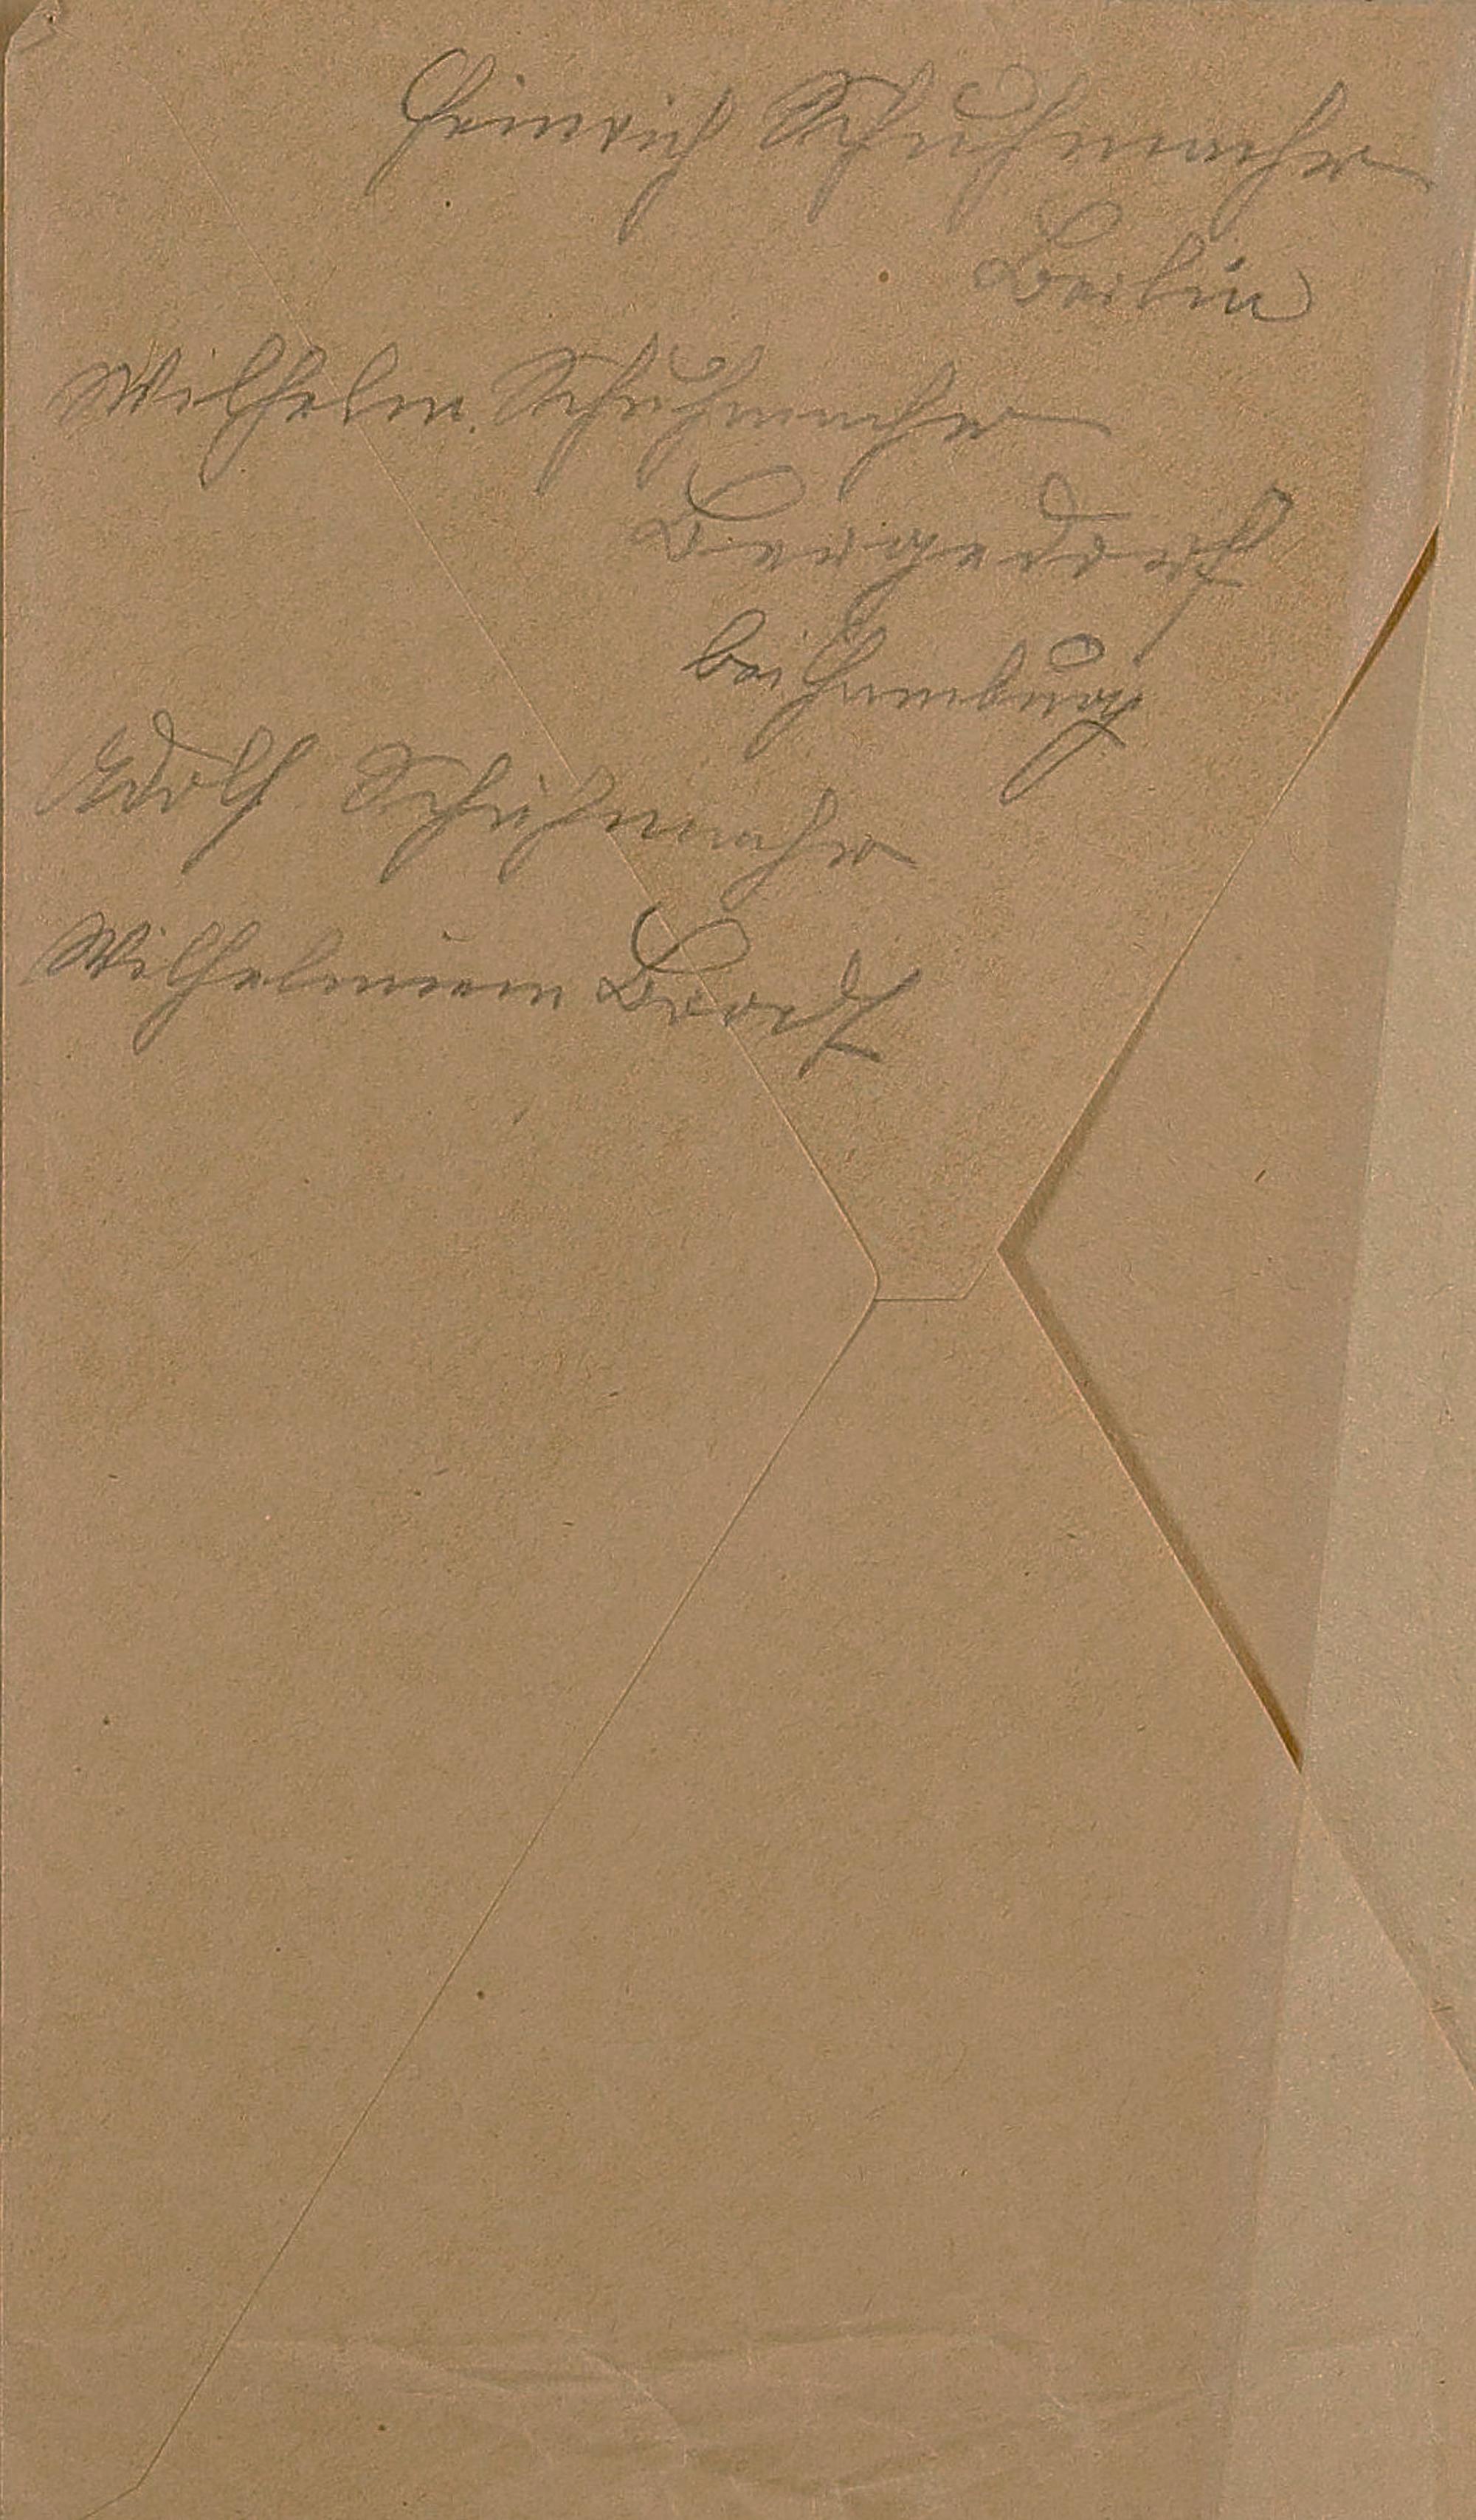 Heinrich Schuhmachr
Berlin
Wilhelm Schuhmachr
Bergedorf
bei Hamburg
Adolf Schuhmachr
Wilhelmine Brodt